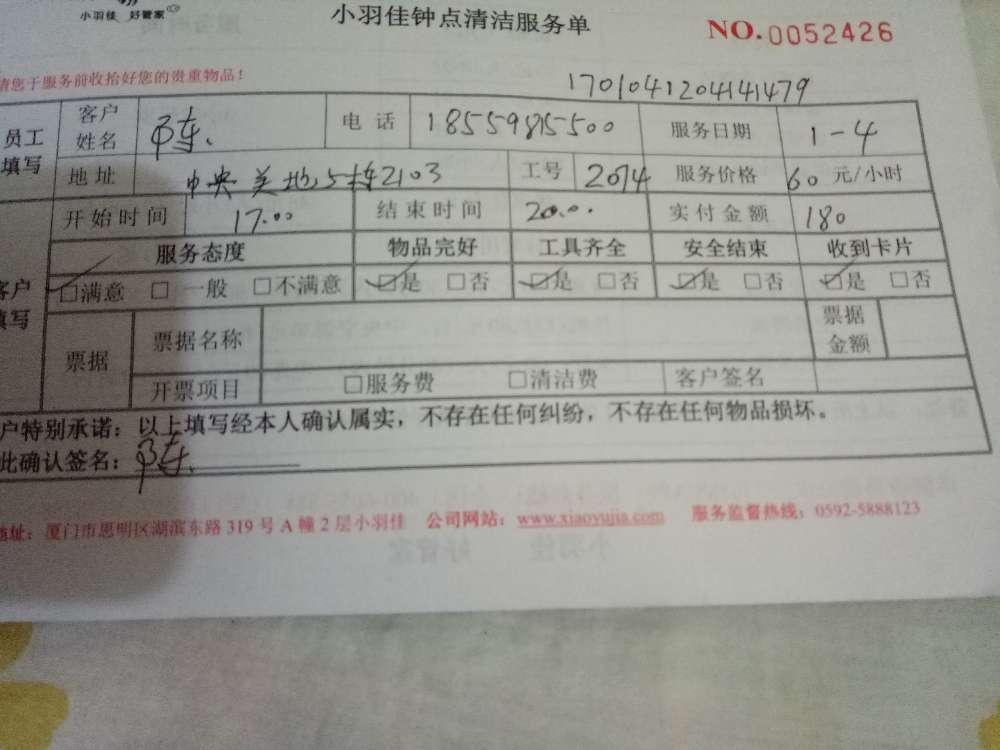 小羽佳 好管家
小羽佳钟点清洁服务单
NO.0052426
请您于服务前收拾好您的贵重物品!
1701041204141479
员工填写 客户姓名 陈 电话 18559815500 服务日期 1-4
地址 中央美地5栋2103 工号 2074 服务价格 60 元/小时
开始时间 17:00 结束时间 20:0 实付金额 180
客户填写 服务态度 物品完好 工具齐全 安全结束 收到卡片
☑满意 □一般 □不满意 ☑是 □否 ☑是 □否 ☑是 □否 ☑是 □否
票据 票据名称 票据金额
开票项目 □服务费 □清洁费 客户签名
户特别承诺:以上填写经本人确认属实,不存在任何纠纷,不存在任何物品损坏。
此确认签名:陈
地址:厦门市思明区湖滨东路 319 号 A 幢 2 层小羽佳 公司网站:www.xiaoyujia.com 服务监督热线:0592-5888123